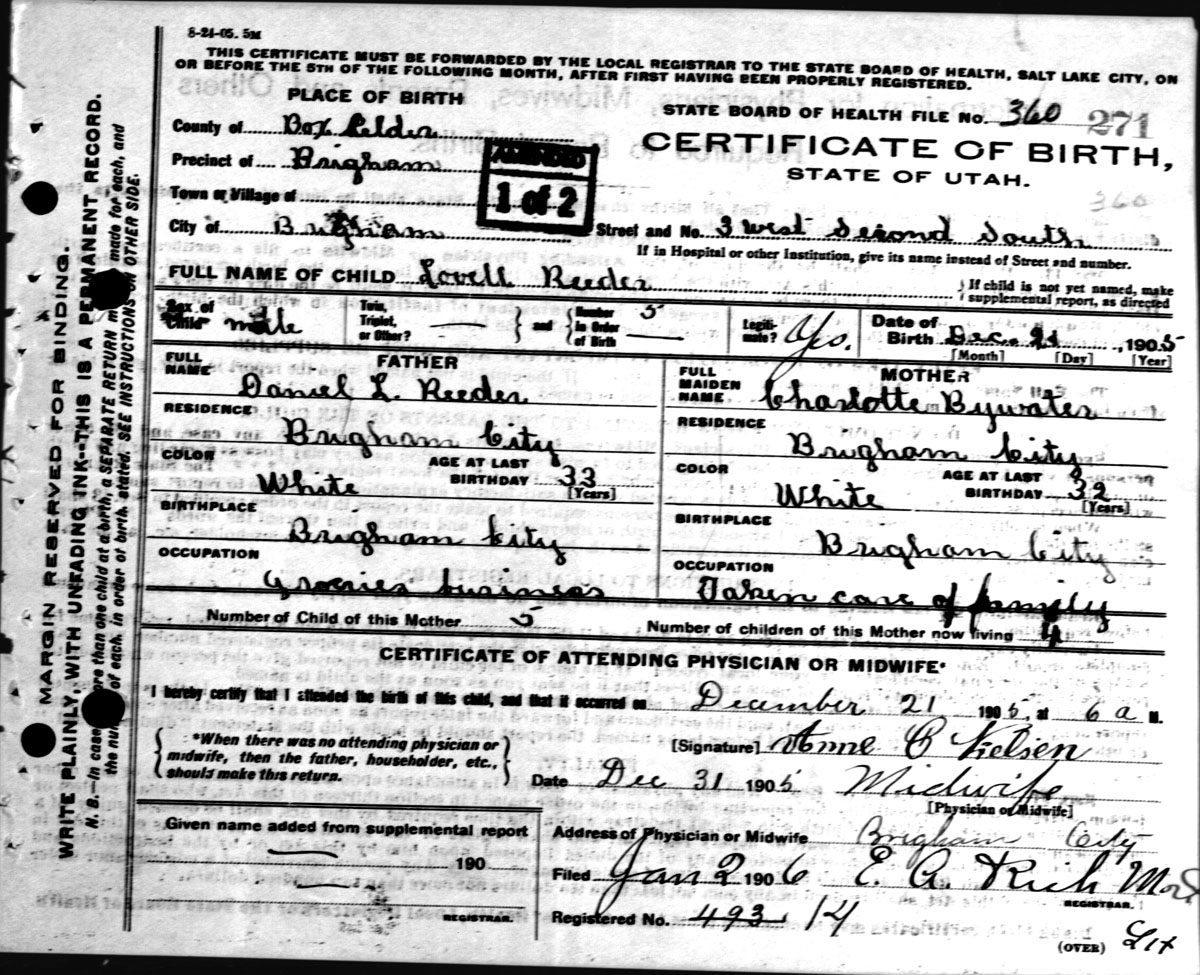 8-24-05. 5M
THIS CERTIFICATE MUST BE FORWARDED BY THE LOCAL REGISTRAR TO THE STATE BOARD OF HEALTH, SALT LAKE CITY, ON
OR BEFORE THE 5TH OF THE FOLLOWING MONTH, AFTER FIRST HAVING BEEN PROPERLY REGISTERED.
PLACE OF BIRTH
STATE BOARD OF HEALTH FILE No. 360 271
County of Box Elder
CERTIFICATE OF BIRTH,
STATE OF UTAH.
Precinct of Brigham
AMENDED
1 of 2
360
Town or Village of
City of Brigham
Street and No. 3 West Second South
If in Hospital or other Institution, give its name instead of Street and number.
FULL NAME OF CHILD Lovell Reeder
If child is not yet named, make
supplemental report, as directed
Sex of Child male
Twin, Triplet, or Other? —
and
Number in Order of Birth 5 —
Legitimate? Yes.
Date of Birth Dec. 21, 1905
[Month] [Day] [Year]
FATHER
FULL NAME Daniel L. Reeder
RESIDENCE Brigham City
COLOR White
AGE AT LAST BIRTHDAY 33
[Years]
BIRTHPLACE Brigham City
OCCUPATION Groceries business
MOTHER
FULL MAIDEN NAME Charlotte Bywater
RESIDENCE Brigham City
COLOR White
AGE AT LAST BIRTHDAY 32
[Years]
BIRTHPLACE Brigham City
OCCUPATION Taken care of family
Number of Child of this Mother 5
Number of children of this Mother now living 4
CERTIFICATE OF ATTENDING PHYSICIAN OR MIDWIFE*
I hereby certify that I attended the birth of this child, and that it occurred on December 21 1905, at 6 a M.
*When there was no attending physician or
midwife, then the father, householder, etc.,
should make this return.
[Signature] Anne C Nielsen
Date Dec 31 1905 Midwife
[Physician or Midwife]
Given name added from supplemental report
190
REGISTRAR.
Address of Physician or Midwife Brigham City
Filed Jan 2 1906 E. A. Rich M.D.
REGISTRAR.
Registered No. 493 14
(OVER)
MARGIN RESERVED FOR BINDING.
WRITE PLAINLY, WITH UNFADING INK--THIS IS A PERMANENT RECORD.
N. B.—In case more than one child at a birth, a SEPARATE RETURN must be made for each, and
the number of each, in order of birth, stated. SEE INSTRUCTIONS ON OTHER SIDE.